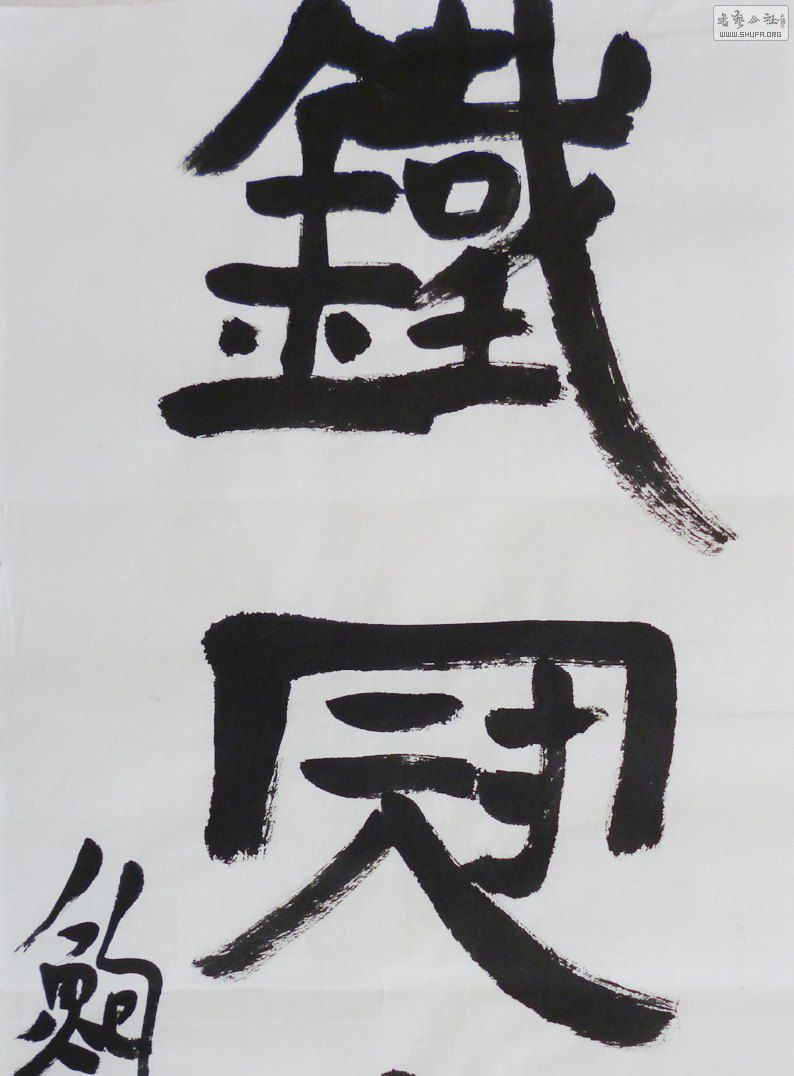 鐵冠
書藝公社
WWW.SHUFA.ORG